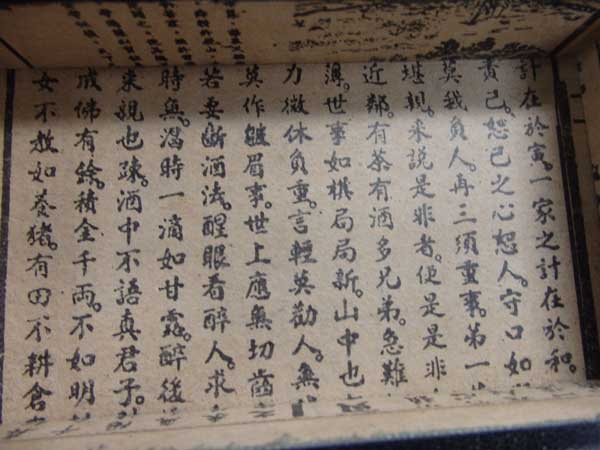 計在於寅。一家之計在於和。
責己。恕己之心恕人。守口如
莫我負人。再三須重事。第一
堪親。來說是非者。便是是非
近鄰。有茶有酒多兄弟。急難
薄。世事如棋局局新。山中也
力微休負重。言輕莫勸人。無
莫作皺眉事。世上應無切齒
若要断酒法。醒眼看醉人。求
時無。渴時一滴如甘露。醉後
來親也疎。酒中不語真君子。
成佛有餘。積金千兩。不如明
女不教如養豬。有田不耕倉